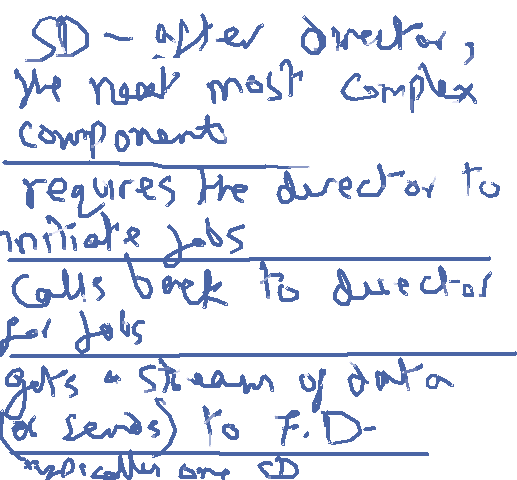 SD - after director,
the next most complex
component
requires the director to
initiate jobs
calls back to director
for jobs
gets a stream of data
(or sends) to F.D-
typically one SD